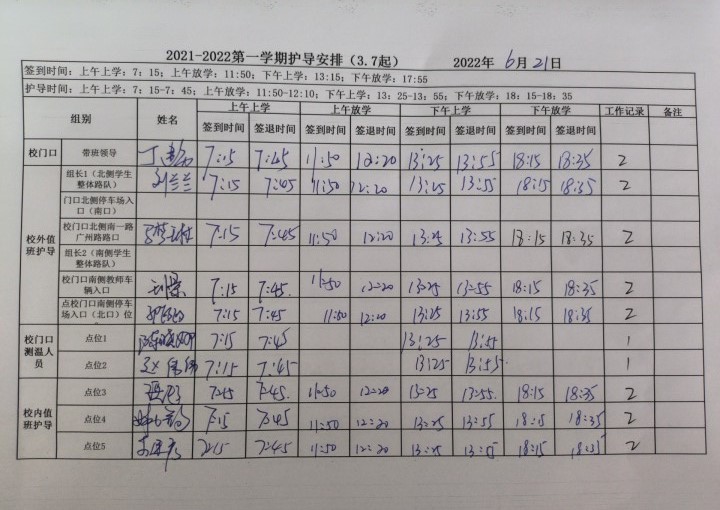 2021-2022第一学期护导安排（3.7起） 2022年 6月 21日
签到时间：上午上学：7：15；上午放学：11:50；下午上学：13:15；下午放学：17:55
护导时间：上午上学：7：15-7：45；上午放学：11:50-12:10；下午上学：13：25-13：55；下午放学：18：15-18：35
组别 姓名 上午上学 上午放学 下午上学 下午放学 工作记录 备注
签到时间 签退时间 签到时间 签退时间 签到时间 签退时间 签到时间 签退时间
校门口 带班领导 7:15 7:45 11:50 12:20 13:25 13:55 18:15 18:35 2
校外值班护导
组长1（北侧学生整体路队） 刘兰兰 7:15 7:45 11:50 12:20 13:25 13:55 18:15 18:35 2
门口北侧停车场入口（南口）
校门口北侧南一路广州路路口 7:15 7:45 11:50 12:20 13:25 13:55 18:15 18:35 2
组长2（南侧学生整体路队）
校门口南侧教师车辆入口 7:15 7:45. 11:50 12:20 13:25 13:55 18:15 18:35 2
点校门口南侧停车场入口（北口）位 7:15 7:45 11:50 12:20 13:25 13:55 18:15 18:35 2
校门口测温人员
点位1 7:15 7:45 13:25 13:55 1
点位2 7:15 7:45 13:25 13:55. 1
校内值班护导
点位3 7:45 7:45. 11:50 12:20 13:25 13:55. 18:15 18:35 2
点位4 7:15 7:45 11:50 12:20 13:25 13:55 18:15 18:35 2
点位5 7:15 7:45 11:50 12:20 13:25 13:55 18:15 18:35 2